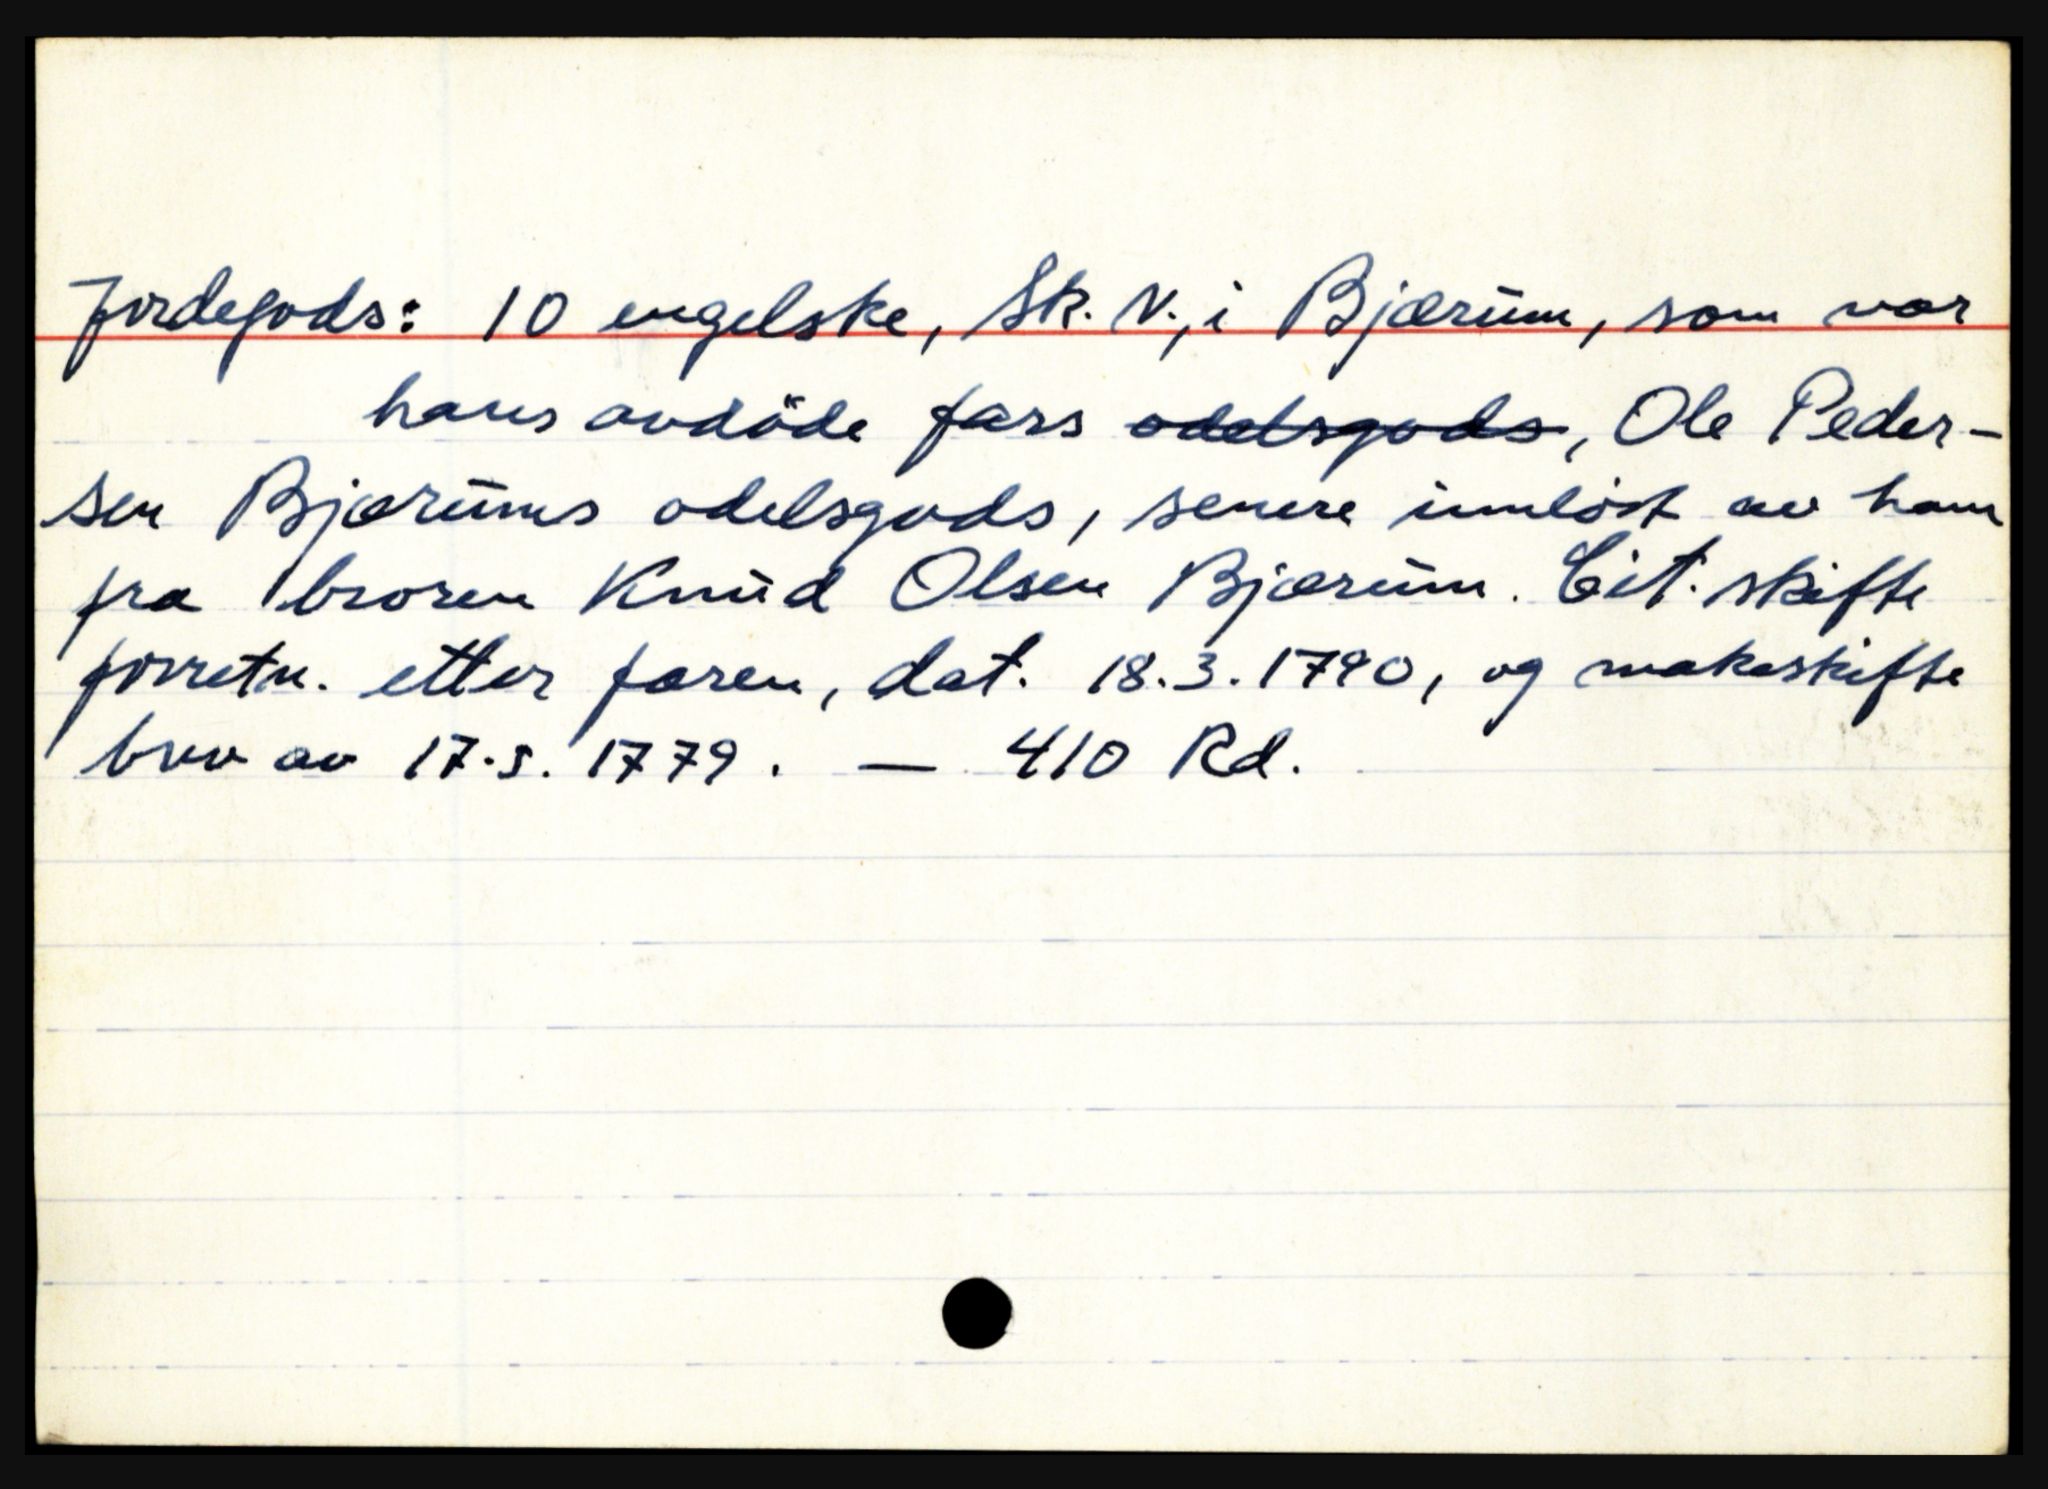 Jordegods: 10 engelske, Sk. V., i Bjærum, som var
hans avdöde fars odelsgods, Ole Peder-
sen Bjærums odelsgods, senere innlöst av ham
fra broren Knud Olsen Bjærum. Cit. skifte
forretn. etter faren, dat. 18.3.1790, og makeskifte
brev av 17.5.1779. — 410 Rd.